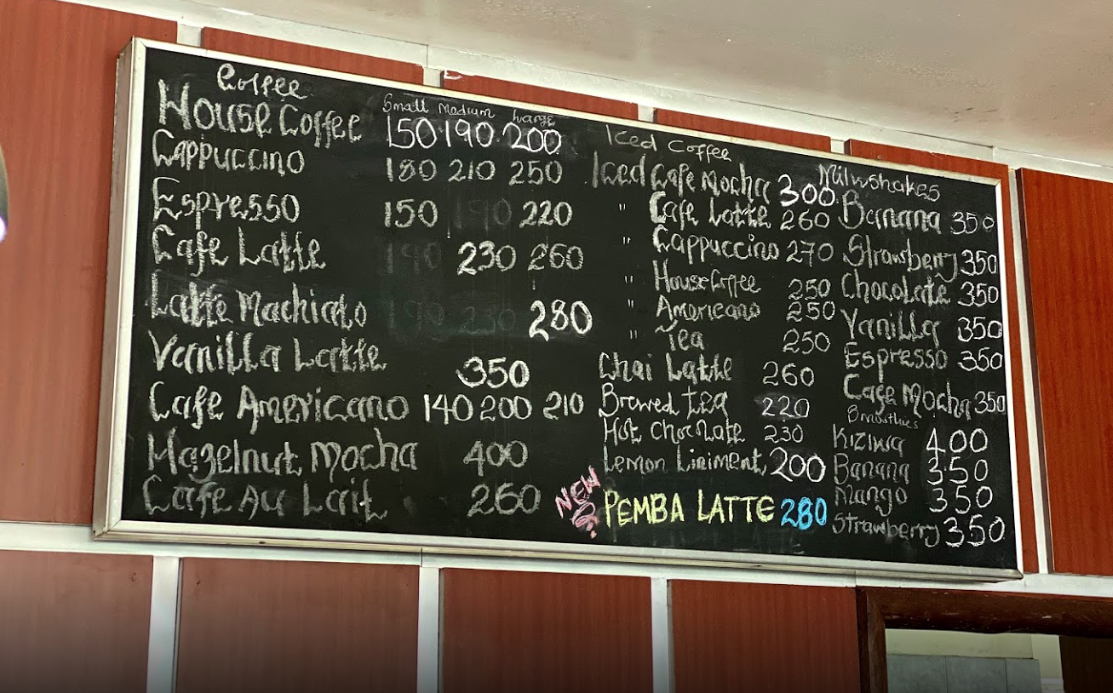 Coffee
Small Medium Large
House Coffee 150 190 200
Cappuccino 180 210 250
Espresso 150 190 220
Cafe Latte 190 230 260
Latte Machiato 190 230 280
Vanilla Latte 350
Cafe Americano 140 200 210
Hazelnut Mocha 400
Cafe Au Lait 260
Iced Coffee
Iced Cafe Mocha 300
" Cafe Latte 260
" Cappuccino 270
" House Coffee 250
" Americano 250
" Tea 250
Chai Latte 260
Brewed tea 220
Hot Chocolate 230
Lemon Liniment 200
NEW PEMBA LATTE 280
Milkshakes
Banana 350
Strawberry 350
Chocolate 350
Vanilla 350
Espresso 350
Cafe Mocha 350
Smoothies
Kiziwa 400
Banana 350
Mango 350
Strawberry 350